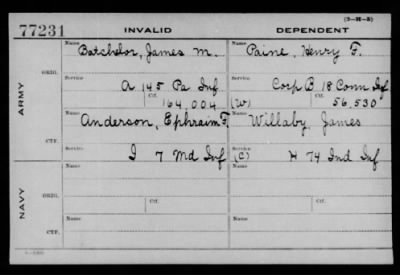 (3-M-5)
77231 INVALID DEPENDENT
Name Name
Batchelor, James M. Paine, Henry F.
ARMY
ORIG.
Service Service
A 145 Pa Inf Corp B 18 Conn Inf
Ctf. Ctf.
164,004 (W) 56,530
Name Name
Anderson, Ephraim F. Willaby, James
CTF.
Service Service
I 7 Md Inf (C) H 74 Ind Inf
NAVY
Name Name
ORIG.
Service Ctf. Service Ctf.
Name Name
CTF.